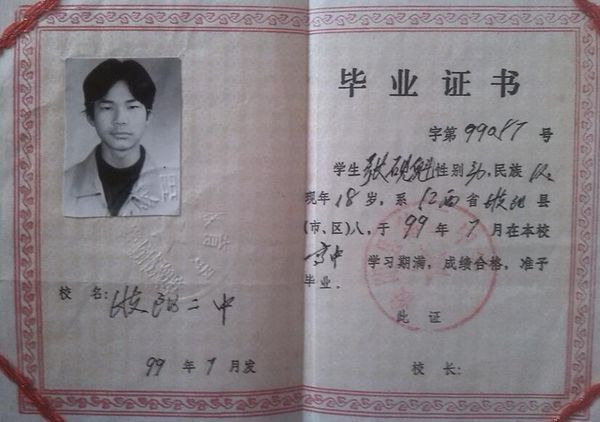 毕业证书
字第 99087 号
学生张砚魁性别 民族汉
现年 18 岁，系江西省 县
(市、区)人，于 99 年 7 月在本校
高中 学习期满，成绩合格，准予
毕业．
此 证
校 长:
校 名: 二中
99 年 7 月发